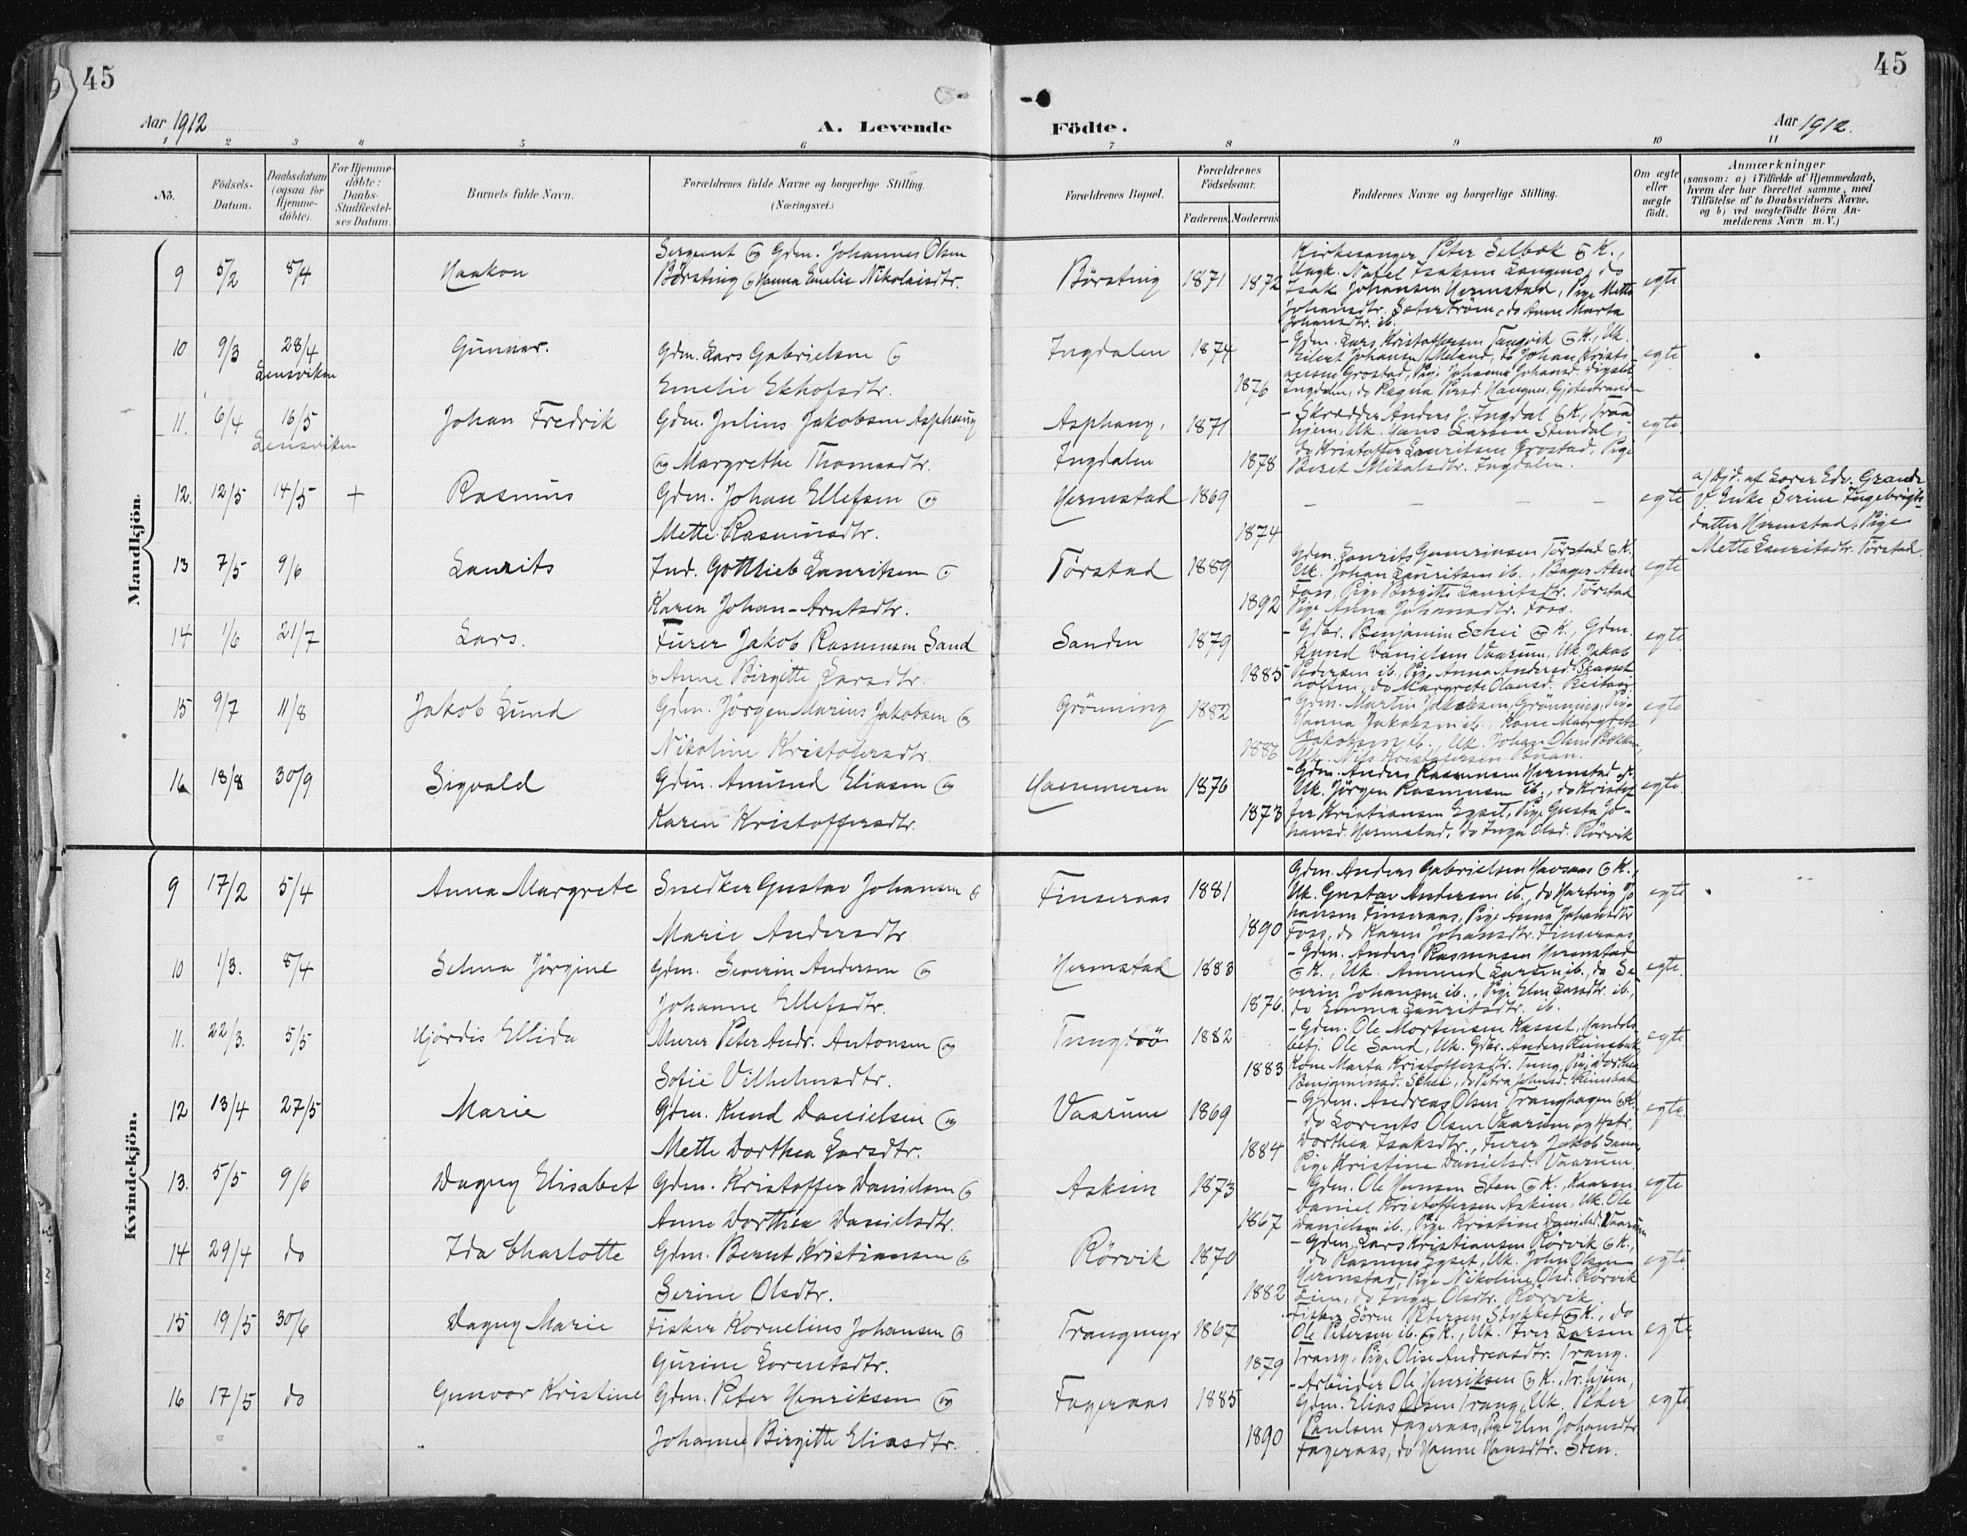 45
45
Aar 1912
A. Levende
Födte.
Aar 1912.
1 2 3 4 5 6 7 8 9 10 11
No.
Födsels-
Datum.
Daabsdatum
(ogsaa for
Hjemme-
döbte).
For Hjemme-
döbte:
Daabs-
Stadfæstel-
ses Datum.
Barnets fulde Navn.
Forældrenes fulde Navne og borgerlige Stilling.
(Næringsvei.)
Forældrenes Bopæl.
Forældrenes
Födselsaar.
Faderens. Moderens.
Faddernes Navne og borgerlige Stilling.
Om ægte
eller
uægte
født.
Anmærkninger
(saasom: a) i Tilfælde af Hjemmedaab,
hvem der har forrettet samme, med
Tilföielse af to Daabsvidners Navne.
og b) ved uægtefödte Börn An-
melderens Navn m. V.)
Mandkjön.
9 5/2 8/4 Haakon
Sergeant og Gdm. Johannes Olsen
Börsting og Hanna Emelie Nikolaisdtr.
Börsting 1871 1872
Kirkesanger Peter Selbæk og K.,
Isak Johansen Hermstad, Pige Mette
Johansdtr. Sæterström, do Anne Marta
Johansdtr. ib.
egte
10 9/3 28/4 Gunnar.
Lensviken
Gdm. Lars Gabrielsen og
Emelie Ekhofsdtr.
Ingdalen 1874 1876
- Gdm. Lars Kristoffersen Tangvik og K., Uk.
Eilert Johansen Meland, do Johan Kristi-
ansen Grostad, Pige Johanna Johansd.
Ingdalen, do Ragna Persd.
egte
11. 6/4 16/5 Johan Fredrik
Lensviken
Gdm. Julius Jakobsen Asphaug
og Margrethe Thomasdtr.
Asphaug,
Ingdalen
1871 1878
- Skrædder Anders J. Ingdal og K., Tr.a
hjem, Uk. Hans Larsen Stendal,
do Kristoffer Lauritsen Grostad, Pige
Beret Mikalsdtr. Ingdalen.
egte
12. 12/5 14/5 + Rasmus
Gdm. Johan Ellefsen og
Mette Rasmusdtr.
Hermstad 1869 1874
– – – –
egte
a) Hjd. af Lærer Edv. Grande
of Enke Serine Ingebrigts-
datter Hermstad, Pige
Mette Lauritsdtr. Tørstad.
13 7/5 9/6 Laurits
Ind. Gottlieb Lauritsen og
Karen Johan-Arntsdtr.
Tørstad 1889 1892
Gdm. Laurits Guneriusen Tørstad og K.
Uk. Johan Lauritsen ib., Bager Aksel
Foss, Pige Birgitte Lauritsdtr. Tørstad
Pige Anna Johansdtr. Foss.
egte
14 1/6 21/7 Lars.
Furer Jakob Rasmussen Sand
og Anne Birgitte Larsdtr.
Sanden 1879 1885
- Gdbr. Benjamin Schei og K., Gdm.
Knud Danielsen Vaarum, Uk. Jakob
Pedersen ib., Pige Anna Andersd.
do Margrete Olausd.
egte
15 9/7 11/8 Jakob Lund
Gdm. Jörgen Marius Jakobsen og
Nikoline Kristofersdtr.
Grönning 1882 1886
- Gdm. Martin Jakobsen Grönning, Pige
Hanna Jakobsen ib., Kone Margrete
Jakobsen ib., Uk. Johan Olsen Bakken,
Uk. Nils Kristofersen Buan.
egte
16 18/8 30/9 Sigvald
Gdm. Amund Eliasen og
Karen Kristoffersdtr.
Hammeren 1876 1873
- Gdm. Anders Rasmussen Hermstad og K.
Uk. Jörgen Rasmussen ib., do Kristof-
fer Kristiansen Lyset, Pige Gusta Jo-
hansd. Hermstad, do Inga Olsd. Rörvik
egte.
Kvindekjön.
9 17/2 5/4 Anna Margrete
Snedker Gustav Johansen og
Marie Andersdtr
Finseraas 1881 1890
Gdm. Anders Gabrielsen Havsaas og K.,
Uk. Gustav Andersen ib., do Hartvig Jo
hansen Finseraas, Pige Anna Johansdtr
Foss, do Karen Johansdtr. Finseraas
egte
10 1/3. 8/4 Selma Jörgine
Gdm. Severin Andersen og
Johanne Ellefsdtr.
Hermstad 1883 1876.
- Gdm. Anders Rasmussen Hermstad
og K., Uk. Amund Larsen ib., do Se
verin Johansen ib., Pige Elen Larsdtr. ib.,
do Emma Lauritsdtr. ib.
egte.
11. 22/3. 5/5 Hjördis Ellida
Murer Peter Andr. Antonsen og
Sofie Vilhelmsdtr.
Tungtrø 1882 1883
- Gdm. Ole Mortensen Kasset, Handels-
betj. Ole Sand, Uk. Gdbr. Anders Rinsbak,
Kone Marta Kristoffersdtr. Tung, Pige Dorthea
Benjaminsd. Schei, do Petra Johnsd. Rinsbak
egte.
12 13/4 27/5 Marie
Gdm. Knud Danielsen og
Mette Dorthea Larsdtr.
Vaarum 1869 1884
- Gdm. Andreas Olsen Tranghagen og K.,
do Lorents Olsen Vaarum og Hstr.
Dorthea Isaksdtr., Furer Jakob Sand,
Pige Kristine Danielsd. Vaarum.
egte.
13. 5/5 9/6 Dagny Elisabet
Gdm. Kristoffer Danielsen og
Anne Dorthea Danielsdtr.
Askim 1873 1867
- Gdm. Ole Hansen Sten og K., Kaarm.
Daniel Kristoffersen Askim, Uk. Ole
Danielsen ib., Pige Kristine Danielsd. Vaarum
egte
14 29/4 do Ida Charlotte
Gdm. Bernt Kristiansen og
Serine Olsdtr.
Rörvik 1870 1882
- Gdm. Lars Kristiansen Rörvik og K.,
do Rasmus Lyset, Uk. John Olsen
Hermstad, Pige Nikoline Olsd. Rörvik
eien, do Inga Olsdtr. Rörvik.
egte.
15 19/5 30/6 Dagny Marie
Fisker Kornelius Johansen og
Gurine Lorentsdtr.
Trangmyr 1867 1879
- Fisker Sören Petersen Stykket og K., do
Ole Petersen ib. og K., Uk. Iver Larsen
Trang, Pige Olise Andreasdtr. Trang.
egte
16 17/5 do Gunvor Kristine
Gdm. Peter Henriksen og
Johanne Birgitte Eliasdtr.
Fageraas 1885 1890
- Arbeider Ole Henriksen og K., Tr.hjem,
Gdm. Elias Olsen Trang, Uk. Peder
Paulsen Fageraas, Pige Elen Johansdtr
Fageraas, do Hanne Hansdtr. Sten.
egte.